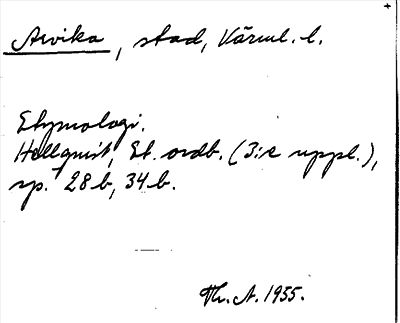 Arvika, stad, Värml. l.
Etymologi.
Hellquist, Et. ordb. (3:e uppl.),
sp. 28 b, 34 b.
Th. A. 1955.